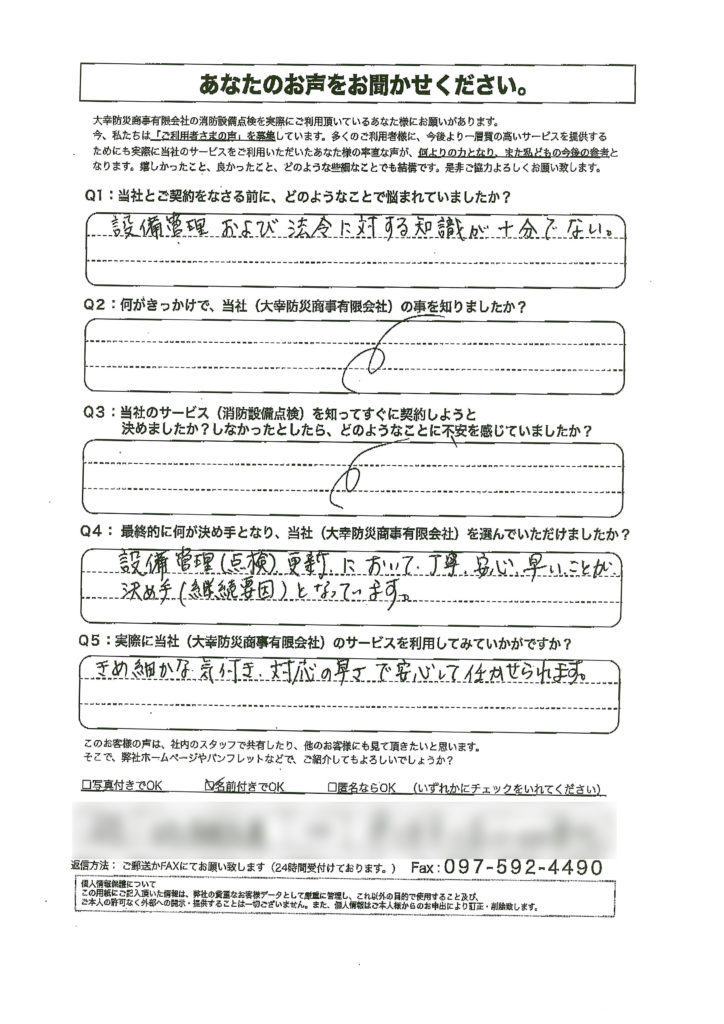 あなたのお声をお聞かせください。
大幸防災商事有限会社の消防設備点検を実際にご利用頂いているあなた様にお願いがあります。
今、私たちは「ご利用者さまの声」を募集しています。多くのご利用者様に、今後より一層質の高いサービスを提供する
ためにも実際に当社のサービスをご利用いただいたあなた様の率直な声が、何よりの力となり、また私どもの今後の参考と
なります。嬉しかったこと、良かったこと、どのような些細なことでも結構です。是非ご協力よろしくお願い致します。
Q1：当社とご契約をなさる前に、どのようなことで悩まれていましたか？
設備管理および法令に対する知識が十分でない。
Q2：何がきっかけで、当社（大幸防災商事有限会社）の事を知りましたか？
Q3：当社のサービス（消防設備点検）を知ってすぐに契約しようと
決めましたか？しなかったとしたら、どのようなことに不安を感じていましたか？
Q4： 最終的に何が決め手となり、当社（大幸防災商事有限会社）を選んでいただけましたか？
設備管理(点検)、更新、において、丁寧、安心、早いことが、
決め手(継続要因)となっています。
Q5：実際に当社（大幸防災商事有限会社）のサービスを利用してみていかがですか？
きめ細かな気付き、対応の早さで安心して任せられます。
このお客様の声は、社内のスタッフで共有したり、他のお客様にも見て頂きたいと思います。
そこで、弊社ホームページやパンフレットなどで、ご紹介してもよろしいでしょうか？
□写真付きでOK ☑名前付きでOK □匿名ならOK （いずれかにチェックをいれてください）
返信方法： ご郵送かFAXにてお願い致します（24時間受付けております。） Fax：097-592-4490
個人情報保護について
この用紙にご記入頂いた情報は、弊社の貴重なお客様データとして厳重に管理し、これ以外の目的で使用すること及び、
ご本人の許可なく外部への開示・提供することは一切ございません。また、個人情報はご本人様からのお申出により訂正・削除致します。